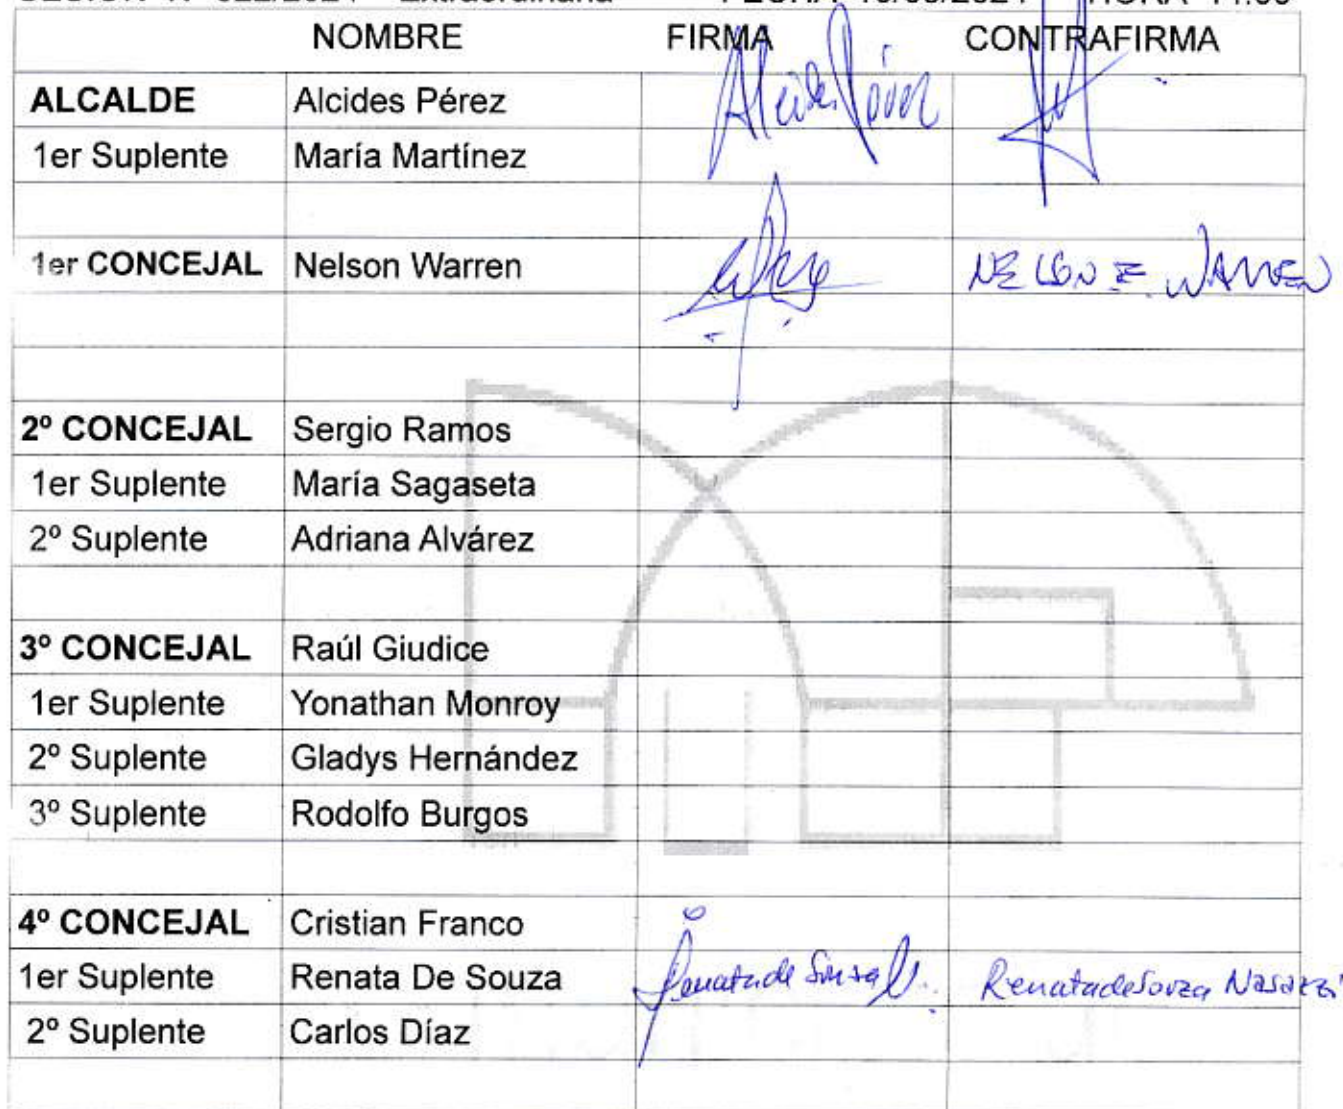 NOMBRE FIRMA CONTRAFIRMA
ALCALDE Alcides Pérez Alcides Pérez
1er Suplente María Martínez
1er CONCEJAL Nelson Warren NELSON E. WARREN
2º CONCEJAL Sergio Ramos
1er Suplente María Sagaseta
2º Suplente Adriana Alvárez
3º CONCEJAL Raúl Giudice
1er Suplente Yonathan Monroy
2º Suplente Gladys Hernández
3º Suplente Rodolfo Burgos
4º CONCEJAL Cristian Franco
1er Suplente Renata De Souza Renata de Souza Renata de Souza Nasazzi
2º Suplente Carlos Díaz